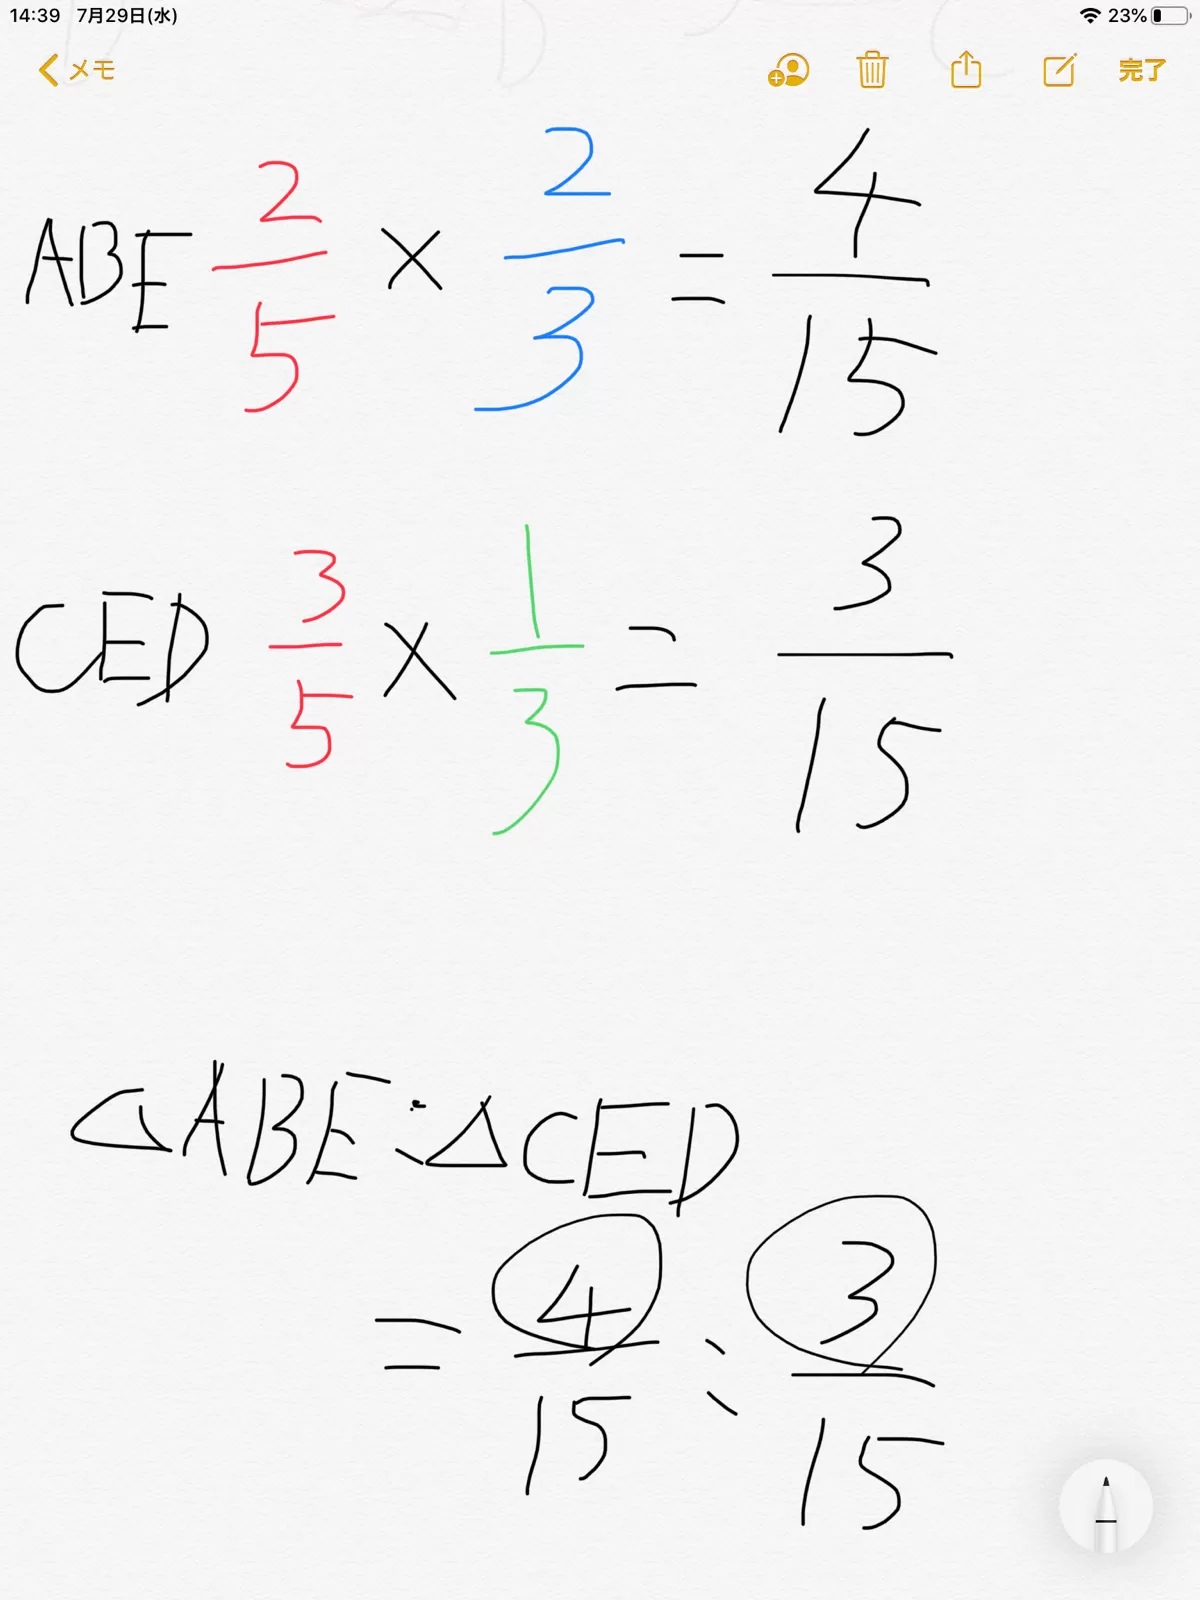 14:39 7月29日(水) 23%
メモ 完了
ABE 2/5 × 2/3 = 4/15
CED 3/5 × 1/3 = 3/15
△ABE:△CED
= 4/15 : 3/15